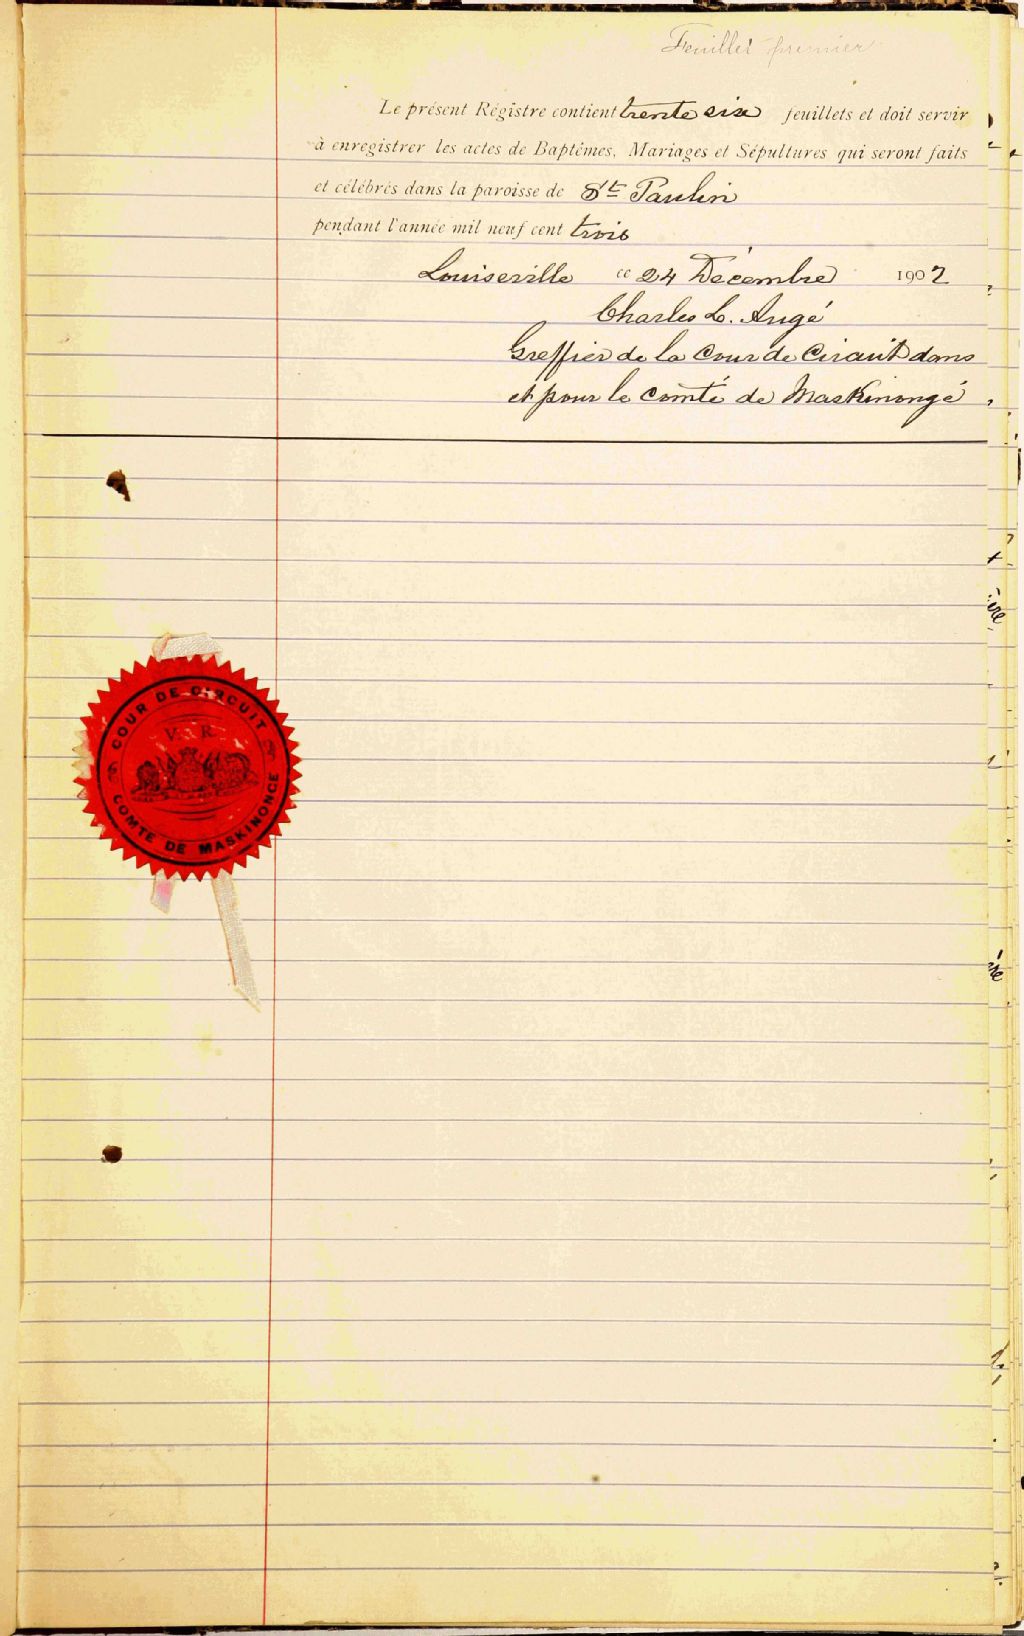 Feuillet premier
Le présent Régistre contient trente six feuillets et doit servir
à enregistrer les actes de Baptêmes, Mariages et Sépultures qui seront faits
et célébrés dans la paroisse de St Paulin
pendant l'année mil neuf cent trois
Louiseville ce 24 Décembre 1902
Charles L. Augé
Greffier de la Cour de Circuit dans
et pour le comté de Maskinongé
COUR DE CIRCUIT
V. R.
COMTE DE MASKINONGE